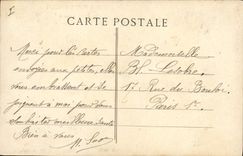 CARTE POSTALE
Merci pour les cartes
envoyées aux petites, elles
vous embrassent et se
joignent à moi pour vous
souhaiter meilleure santé
Bien à vous
Mademoiselle
Bl.
1 Rue du Bouloi
Paris 1er